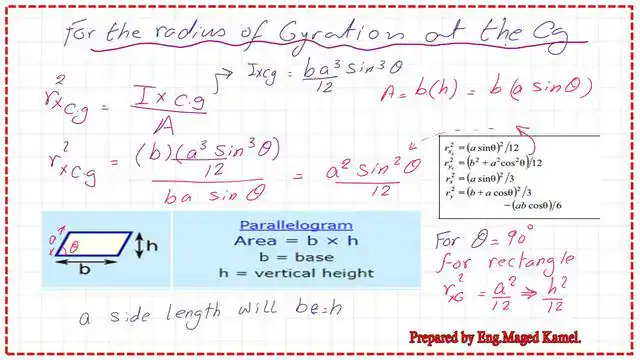 For the radius of Gyration at the Cg
r²x c.g = I x c.g / A
→ Ixcg = ba³ sin³θ / 12
A = b(h) = b(a sinθ)
r²x c.g = (b)(a³ sin³θ) / 12 / ba sinθ = a² sin²θ / 12
r²xc = (a sinθ)²/12
r²yc = (b² + a²cos²θ)/12
r²x = (a sinθ)²/3
r²y = (b + a cosθ)²/3
− (ab cosθ)/6
Parallelogram
Area = b × h
b = base
h = vertical height
θ
h
b
For θ = 90°
for rectangle
r²xG = a²/12 ⇒ h²/12
a side length will be=h
Prepared by Eng.Maged Kamel.